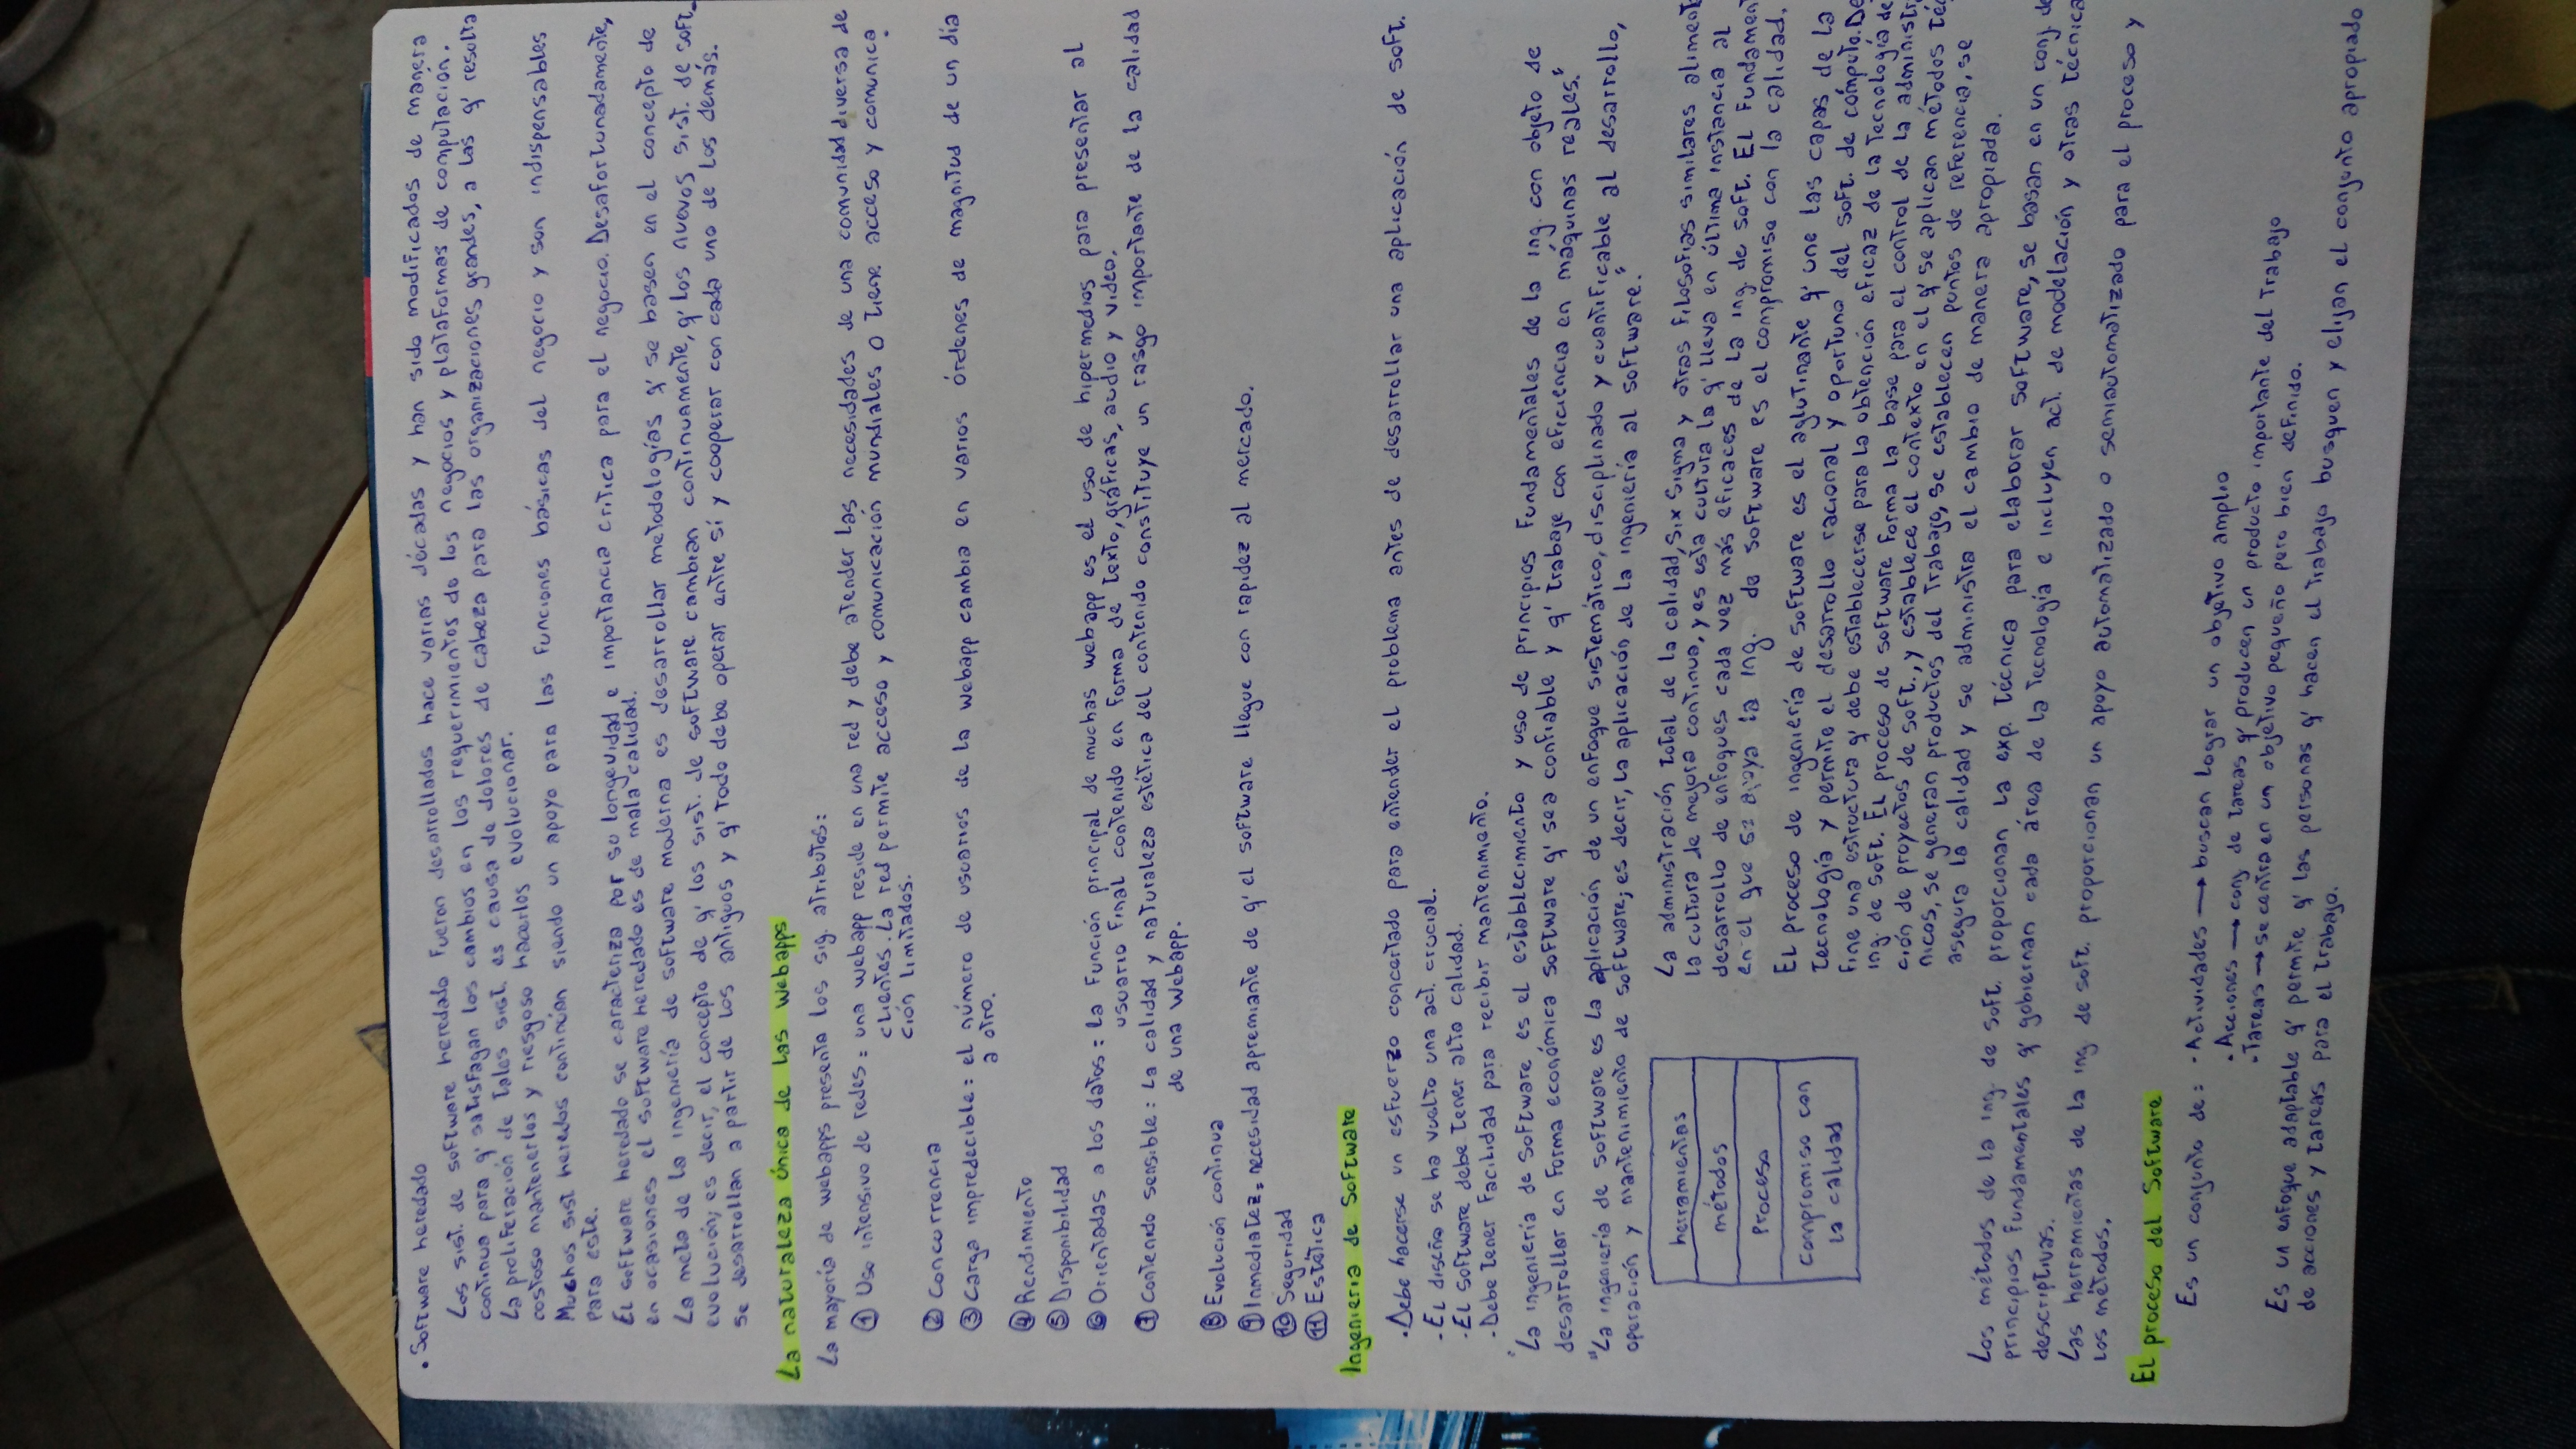 • Software heredado
Los sist. de software heredado fueron desarrollados hace varias décadas y han sido modificados de manera
continua para q' satisfagan los cambios en los requerimientos de los negocios y plataformas de computación.
La proliferación de tales sist. es causa de dolores de cabeza para las organizaciones grandes, a las q' resulta
costoso mantenerlos y riesgoso hacerlos evolucionar.
Muchos sist heredos continúan siendo un apoyo para las funciones básicas del negocio y son indispensables
para este.
El software heredado se caracteriza por su longevidad e importancia crítica para el negocio. Desafortunadamente,
en ocasiones el software heredado es de mala calidad.
La meta de la ingeniería de software moderna es desarrollar metodologías q' se basen en el concepto de
evolución; es decir, el concepto de q' los sist. de software cambian continuamente, q' los nuevos sist. de soft.
se desarrollan a partir de los antiguos y q' todo debe operar entre sí y cooperar con cada uno de los demás.
La naturaleza única de las webapps
La mayoría de webapps presenta los sig. atributos:
① Uso intensivo de redes: una webapp reside en una red y debe atender las necesidades de una comunidad diversa de
clientes. La red permite acceso y comunicación mundiales o tiene acceso y comunica
ción limitados.
② Concurrencia
③ Carga impredecible: el número de usuarios de la webapp cambia en varios órdenes de magnitud de un día
a otro.
④ Rendimiento
⑤ Disponibilidad
⑥ Orientadas a los datos: la función principal de muchas webapp es el uso de hipermedios para presentar al
usuario final contenido en forma de texto, gráficas, audio y video.
⑦ Contenido sensible: la calidad y naturaleza estética del contenido constituye un rasgo importante de la calidad
de una Webapp.
⑧ Evolución continua
⑨ Inmediatez: necesidad apremiante de q' el software llegue con rapidez al mercado.
⑩ Seguridad
⑪ Estética
Ingeniería de Software
• Debe hacerse un esfuerzo concertado para entender el problema antes de desarrollar una aplicación de soft.
- El diseño se ha vuelto una act. crucial.
- El software debe tener alta calidad.
- Debe tener facilidad para recibir mantenimiento.
"La ingeniería de software es el establecimiento y uso de principios fundamentales de la ing. con objeto de
desarrollar en forma económica software q' sea confiable y q' trabaje con eficiencia en máquinas reales."
"La ingeniería de software es la aplicación de un enfoque sistemático, disciplinado y cuantificable al desarrollo,
operación y mantenimiento de software; es decir, la aplicación de la ingeniería al software."
herramientas
métodos
Proceso
Compromiso con
la calidad
La administración total de la calidad, Six Sigma y otras filosofías similares aliment
la cultura de mejora continua, y es esta cultura la q' lleva en última instancia al
desarrollo de enfoques cada vez más eficaces de la ing. de soft. El fundamen
en el que se apoya la ing. de software es el compromiso con la calidad.
El proceso de ingeniería de software es el aglutinante q' une las capas de la
tecnología y permite el desarrollo racional y oportuno del soft. de cómputo. De
fine una estructura q' debe establecerse para la obtención eficaz de la tecnología de
ing. de soft. El proceso de software forma la base para el control de la administr
ción de proyectos de soft., y establece el contexto en el q' se aplican métodos téc
nicos, se generan productos del trabajo, se establecen puntos de referencia, se
asegura la calidad y se administra el cambio de manera apropiada.
Los métodos de la ing. de soft. proporcionan la exp. técnica para elaborar software, se basan en un conj. de
principios fundamentales q' gobiernan cada área de la tecnología e incluyen act. de modelación y otras técnica
descriptivas.
Las herramientas de la ing. de soft. proporcionan un apoyo automatizado o semiautomatizado para el proceso y
los métodos.
El proceso del Software
Es un conjunto de: • Actividades → buscan lograr un objetivo amplio
• Acciones → conj de tareas q' producen un producto importante del trabajo
• Tareas → se centra en un objetivo pequeño pero bien definido.
Es un enfoque adaptable q' permite q' las personas q' hacen el trabajo busquen y elijan el conjunto apropiado
de acciones y tareas para el trabajo.